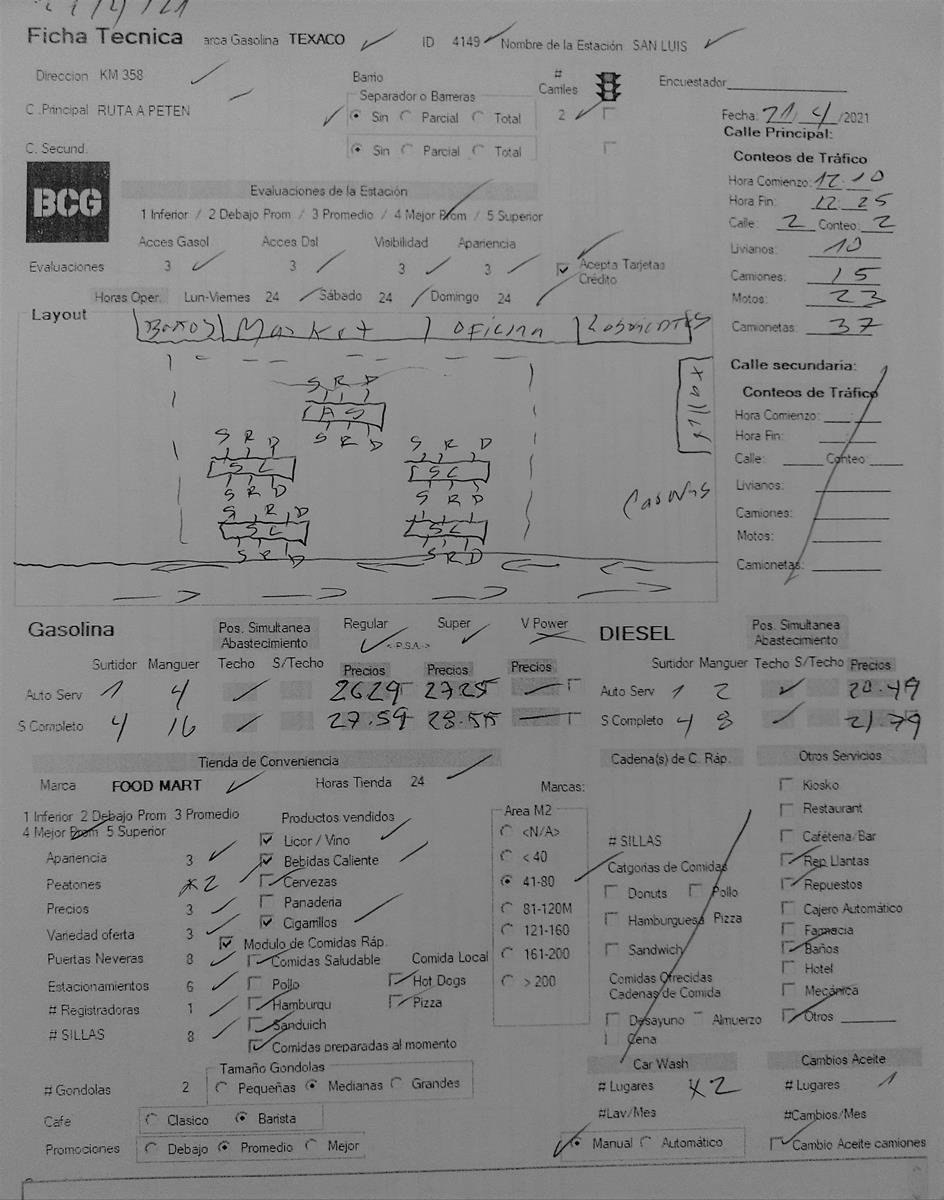 21/4/21
Ficha Tecnica arca Gasolina TEXACO ID 4149 Nombre de la Estación SAN LUIS
Direccion KM 358 Barrio # Carriles Encuestador
C .Principal RUTA A PETEN Separador o Barreras
Sin Parcial Total 2 Fecha: 21/4/2021
Calle Principal:
C. Secund. Sin Parcial Total
Conteos de Tráfico
BCG Evaluaciones de la Estación Hora Comienzo: 12.10
1 Inferior / 2 Debajo Prom / 3 Promedio / 4 Mejor Prom / 5 Superior Hora Fin: 12 25
Calle: 2 Conteo: 2
Acces Gasol Acces Dsl Visibilidad Apariencia Livianos: 10
Evaluaciones 3 3 3 3 Acepta Tarjetas Crédito Camiones: 15
Horas Oper. Lun-Viernes 24 Sábado 24 Domingo 24 Motos: 23
Layout Camionetas: 37
Baños Market Oficina Lubricantes
Calle secundaria:
Conteos de Tráfico
Hora Comienzo:
Hora Fin:
Calle: Conteo:
Livianos:
Camiones:
Motos:
Camionetas:
S R D
AS
S R D
S R D S R D
SC SC
S R D S R D
S R D S R D
SC SC
S R D S R D
Gasolina Pos. Simultanea Abastecimiento Regular Super V Power DIESEL Pos. Simultanea Abastecimiento
< P.S.A. >
Surtidor Manguer Techo S/Techo Precios Precios Precios Surtidor Manguer Techo S/Techo Precios
Auto Serv 1 4 2629 2725 Auto Serv 1 2 20.49
S Completo 4 16 27.59 28.55 S Completo 4 8 21.79
Tienda de Conveniencia Cadena(s) de C. Ráp. Otros Servicios
Marca FOOD MART Horas Tienda 24 Marcas:
1 Inferior 2 Debajo Prom 3 Promedio
4 Mejor Prom 5 Superior
Apariencia 3
Peatones 2
Precios 3
Variedad oferta 3
Puertas Neveras 8
Estacionamientos 6
# Registradoras 1
# SILLAS 8
Productos vendidos
Licor / Vino
Bebidas Caliente
Cervezas
Panaderia
Cigarrillos
Modulo de Comidas Ráp.
Comidas Saludable Comida Local
Pollo Hot Dogs
Hamburqu Pizza
Sanduich
Comidas preparadas al momento
Area M2
<N/A>
< 40
41-80
81-120M
121-160
161-200
> 200
# SILLAS
Catgorias de Comidas
Donuts Pollo
Hamburguesa Pizza
Sandwich
Comidas Ofrecidas
Cadenas de Comida
Desayuno Almuerzo
Cena
Kiosko
Restaurant
Caféteria/Bar
Rep Llantas
Repuestos
Cajero Automático
Farmacia
Baños
Hotel
Mecánica
Otros
# Gondolas 2 Tamaño Gondolas
Pequeñas Medianas Grandes
Cafe Clasico Barista
Promociones Debajo Promedio Mejor
Car Wash
# Lugares 2
#Lav/Mes
Manual Automático
Cambios Aceite
# Lugares 1
#Cambios/Mes
Cambio Aceite camiones